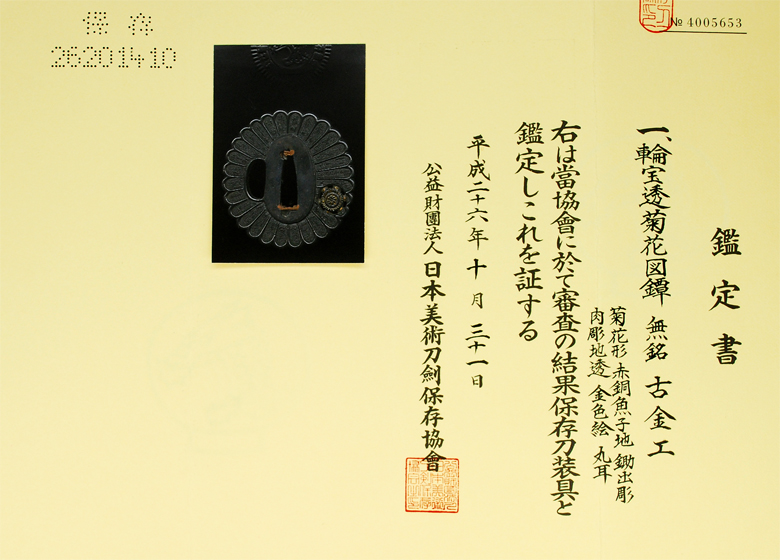 № 4005653
保存
26201410
鑑定書
一、輪宝透菊花図鐔 無銘 古金工
菊花形 赤銅魚子地 鋤出彫
肉彫地透 金色絵 丸耳
右は當協會に於て審査の結果保存刀装具と
鑑定しこれを証する
平成二十六年十月三十一日
公益財團法人 日本美術刀劍保存協會